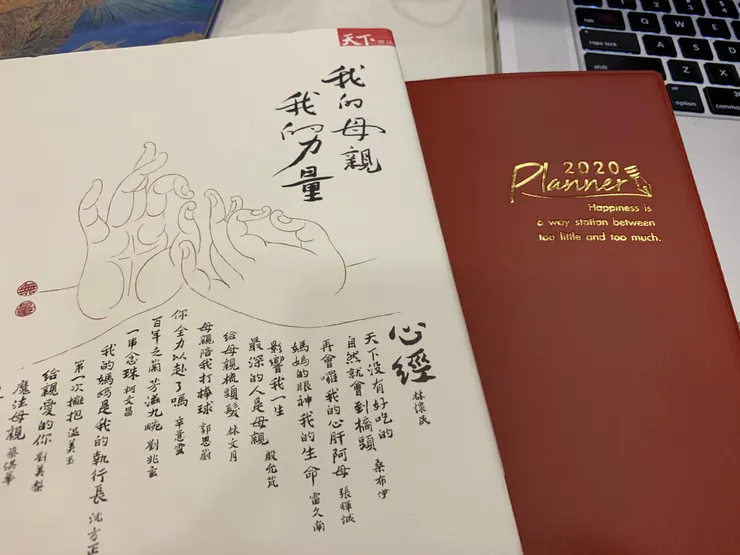 天下
我的母親
我的力量
無量
心經 林懷民
天下沒有好吃的
自然就會到橋頭 桑布伊
再會囉我的心肝阿母 張輝誠
媽媽的眼神我的生命 雷久南
影響我一生
最深的人是母親 殷允芃
給母親梳頭髮 林文月
母親陪我打棒球 郭思蔚
你全力以赴了嗎 辛意雲
百年之蘭芳滋九畹 劉兆玄
一串念珠 柯文昌
我的媽媽是我的執行長 沈方正
第一次擁抱 溫美玉
給親愛的你 劉美梨
魔法母親 蔡淇華
2020
Planner
Happiness is
a way station between
too little and too much.
tab
Q
W
caps lock
A
S
shift
Z
X
option